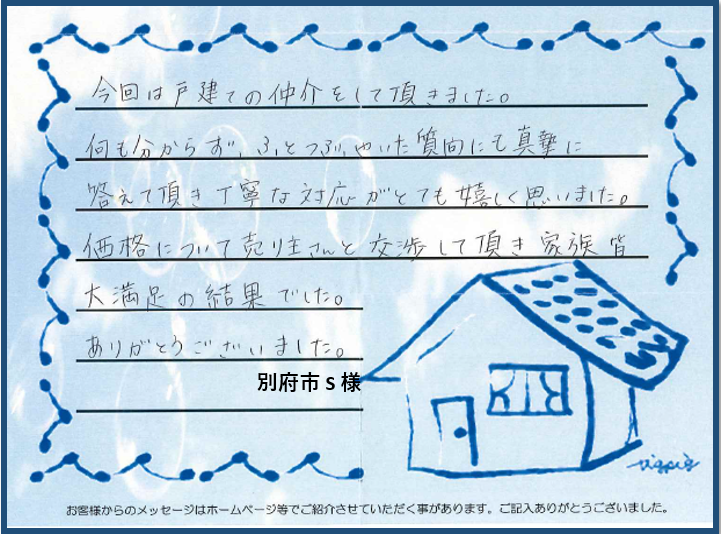 今回は戸建ての仲介をして頂きました。
何も分からず、ふとつぶやいた質問にも真摯に
答えて頂き丁寧な対応がとても嬉しく思いました。
価格について売り主さんと交渉して頂き家族皆
大満足の結果でした。
ありがとうございました。
別府市S様
お客様からのメッセージはホームページ等でご紹介させていただく事があります。ご記入ありがとうございました。